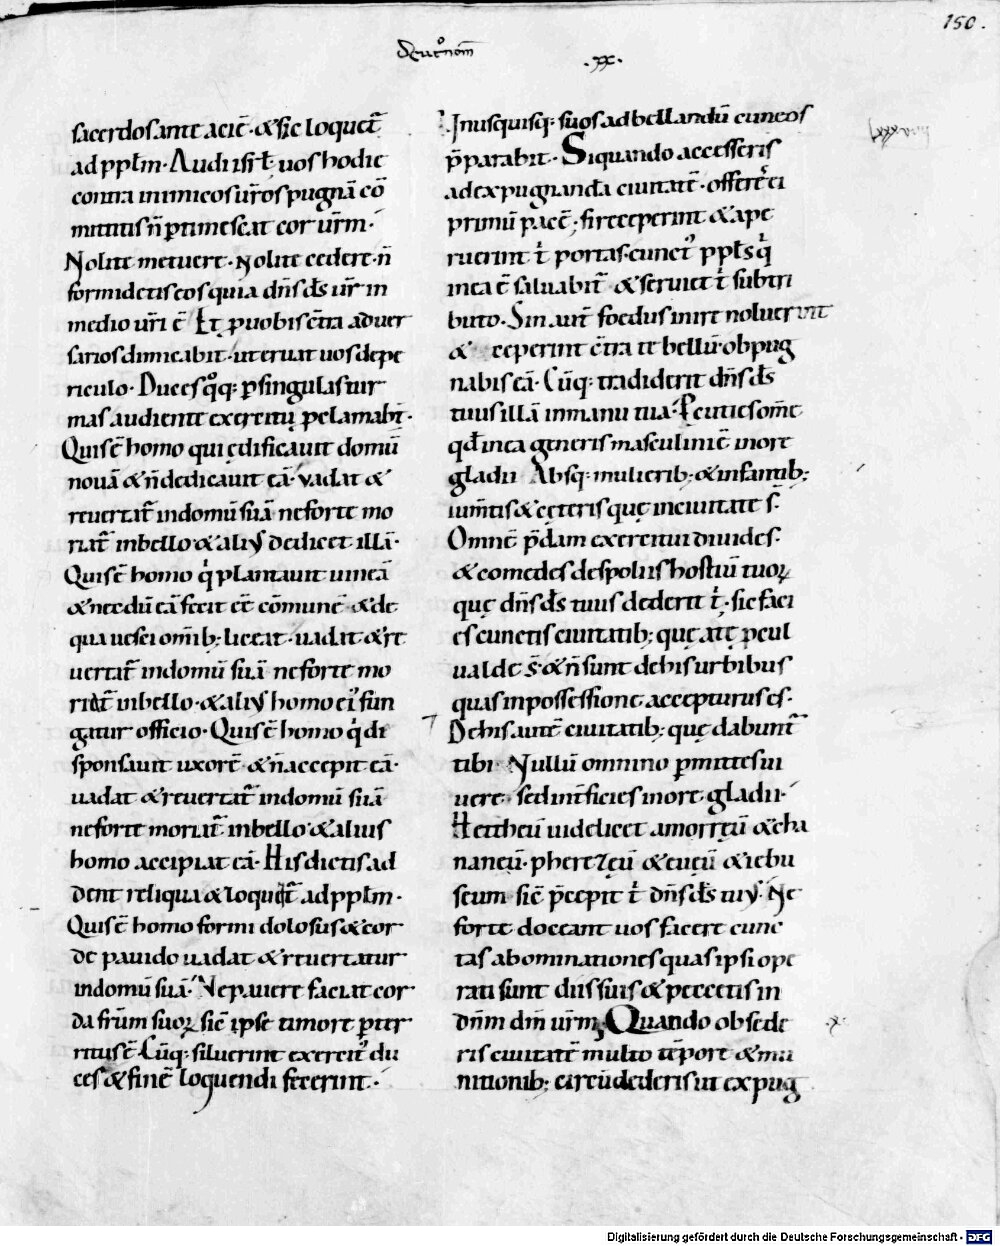 150.
Deut̾nom̅
.xx.
sacerdos ante acie̅. & sic loquet̅
ad ppl̅m. Audi isrl̅ uos hodie
contra inimicos ur̅os pugna̅ co̅
mittitis n̅ ptimescat cor ur̅m.
Nolite metuere. Nolite cedere. n̅
formidetis eos quia dn̅s ds̅ ur̅ in
medio ur̅i e̅. Et ꝓ uobis c̅tra aduer
sarios dimicabit. ut eruat uos de pe
riculo. Duces qͦq; ꝑ singulas tur
mas audiente exercitu ꝓclamabt̅.
Quis e̅ homo qui ędificauit domu̅
noua̅ & n̅ dedicauit ea̅. Vadat &
reuertat̅ in domu̅ sua̅ ne forte mo
riat̅ in bello & aliꝰ dedicet illa̅.
Quis e̅ homo qͥ plantauit uinea̅
& necdu̅ ea̅ fecit ee̅ co̅mune̅ & de
qua uesci omib; liceat. uadat & re
uertat̅ in domu̅ sua̅ ne forte mo
riat̅ in bello. & aliꝰ homo eiꝰ fun
gatur officio. Quis e̅ homo qͥ di
sponsauit uxore̅. & n̅ accepit ea̅.
uadat & reuertat̅ in domu̅ sua̅
ne forte moriat̅ in bello & alius
homo accipiat ea̅. His dictis ad
dent reliqua & loquent̅ ad ppl̅m.
Quis e̅ homo formidolosus & cor
de pauido uadat & reuertatur
in domu̅ sua̅. Ne pauere faciat cor
da fr̅um suoꝝ sic̅ ipse timore ꝑter
ritus e̅. Cu̅q; siluerint exercitꝰ du
ces & fine̅ loquendi fecerint.
Unusquisq; suos ad bellandu̅ cuneos
p̅parabit. Si quando accesseris
ad expugnanda̅ ciuitate̅. offeres ei
primu̅ pace̅; si receperint & ape
ruerint tͥ portas. cunctꝰ ppl̅s qͥ
in ea e̅ saluabit̅ & seruiet tͥ sub tri
buto. Sin aut̅ foedus inire noluerint
& ceperint c̅tra te bellu̅. obpug
nabis ea̅. Cu̅q; tradiderit dn̅s ds̅
tuus illa̅ in manu tua. Pcuties om̅e
qd̅ in ea generis masculini e̅ in ore
gladii Absq; mulierib; & infantib;
ium̅tis & cęteris quę in ciuitate s̅.
Omne̅ p̅dam exercitui diuides.
& comedes de spoliis hostiu̅ tuoꝝ
quę dn̅s ds̅ tuus dederit tͥ; sic faci
es cunctis ciuitatib; quę a te ꝓcul
ualde s̅. & n̅ sunt de his urbibus
quas in possessione accepturus es.
De his aute̅ ciuitatib; quę dabunt̅
tibi. Nullu̅ omnino ꝑmittes ui
uere. sed int̅ficies in ore gladii.
Hettheu̅ uidelicet amorręu̅ & cha
naneu̅. pherezęu̅ & euęu̅ & iebu
seum sic̅ p̅cepit tͥ dn̅s ds̅ tuꝰ. Ne
forte doceant uos facere cunc
tas abominationes quas ipsi ope
rati sunt diis suis & peccetis in
dn̅m dm̅ ur̅m; Quando obsede
ris ciuitate̅ multo te̅pore & mu
nitionib; circu̅dederis ut expug
.x.
Digitalisierung gefördert durch die Deutsche Forschungsgemeinschaft - DFG